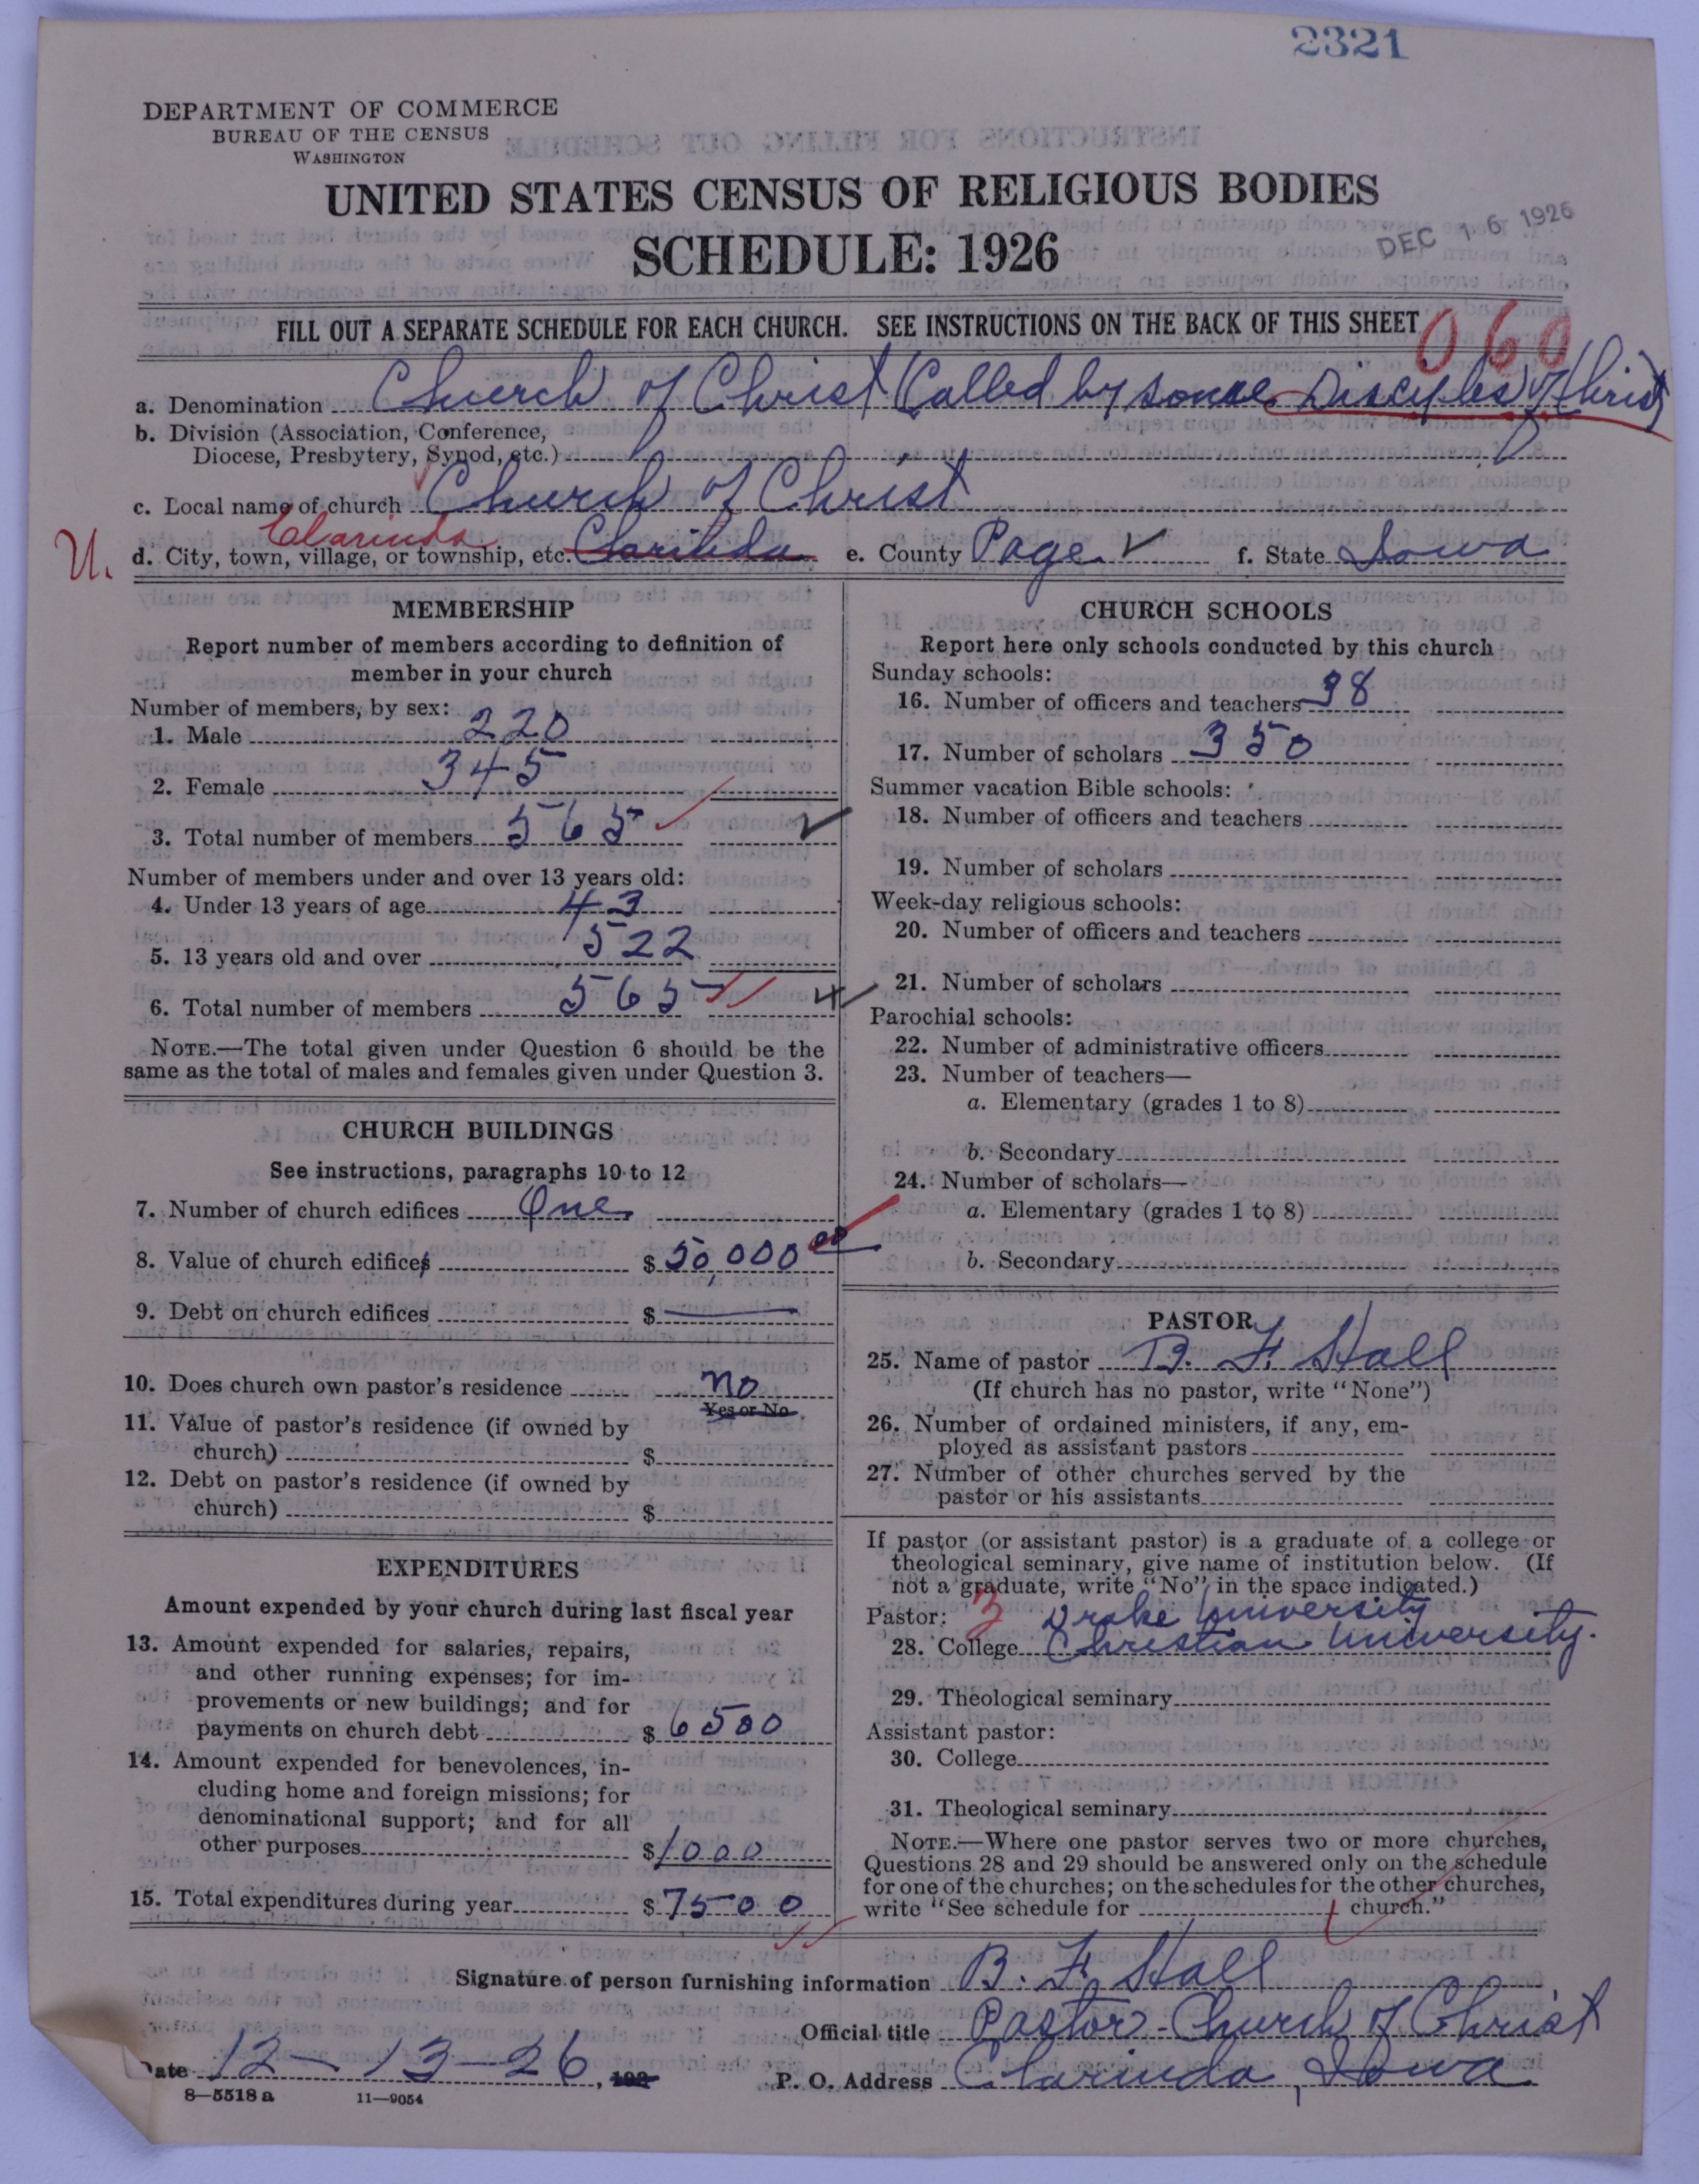 2321
DEPARTMENT OF COMMERCE
BUREAU OF THE CENSUS
WASHINGTON
UNITED STATES CENSUS OF RELIGIOUS BODIES
SCHEDULE: 1926
DEC 16 1926
FILL OUT A SEPARATE SCHEDULE FOR EACH CHURCH. SEE INSTRUCTIONS ON THE BACK OF THIS SHEET
060
a. Denomination Church of Christ (Called by some Disciples of Christ)
b. Division (Association, Conference,
Diocese, Presbytery, Synod, etc.)
c. Local name of church Church of Christ
Clarinda
U. d. City, town, village, or township, etc. Clarinda e. County Page f. State Iowa
MEMBERSHIP
Report number of members according to definition of
member in your church
Number of members, by sex:
1. Male 220
2. Female 345
3. Total number of members 565
Number of members under and over 13 years old:
4. Under 13 years of age 43
5. 13 years old and over 522
6. Total number of members 565
NOTE.—The total given under Question 6 should be the
same as the total of males and females given under Question 3.
CHURCH BUILDINGS
See instructions, paragraphs 10 to 12
7. Number of church edifices One
8. Value of church edifices $ 50,000 00
9. Debt on church edifices $ —
10. Does church own pastor's residence no
Yes or No
11. Value of pastor's residence (if owned by
church) $
12. Debt on pastor's residence (if owned by
church) $
EXPENDITURES
Amount expended by your church during last fiscal year
13. Amount expended for salaries, repairs,
and other running expenses; for im-
provements or new buildings; and for
payments on church debt $ 6500
14. Amount expended for benevolences, in-
cluding home and foreign missions; for
denominational support; and for all
other purposes $ 1000
15. Total expenditures during year $ 7500
CHURCH SCHOOLS
Report here only schools conducted by this church
Sunday schools:
16. Number of officers and teachers 38
17. Number of scholars 350
Summer vacation Bible schools:
18. Number of officers and teachers
19. Number of scholars
Week-day religious schools:
20. Number of officers and teachers
21. Number of scholars
Parochial schools:
22. Number of administrative officers
23. Number of teachers—
a. Elementary (grades 1 to 8)
b. Secondary
24. Number of scholars—
a. Elementary (grades 1 to 8)
b. Secondary
PASTOR
25. Name of pastor B. F. Hall
(If church has no pastor, write "None")
26. Number of ordained ministers, if any, em-
ployed as assistant pastors
27. Number of other churches served by the
pastor or his assistants
If pastor (or assistant pastor) is a graduate of a college or
theological seminary, give name of institution below. (If
not a graduate, write "No" in the space indicated.)
Pastor: 3 Drake University
28. College Christian University.
29. Theological seminary
Assistant pastor:
30. College
31. Theological seminary
NOTE.—Where one pastor serves two or more churches,
Questions 28 and 29 should be answered only on the schedule
for one of the churches; on the schedules for the other churches,
write "See schedule for church."
Signature of person furnishing information B. F. Hall
Official title Pastor - Church of Christ
Date 12-13-26, 192 P. O. Address Clarinda, Iowa
8—5518 a 11—9054